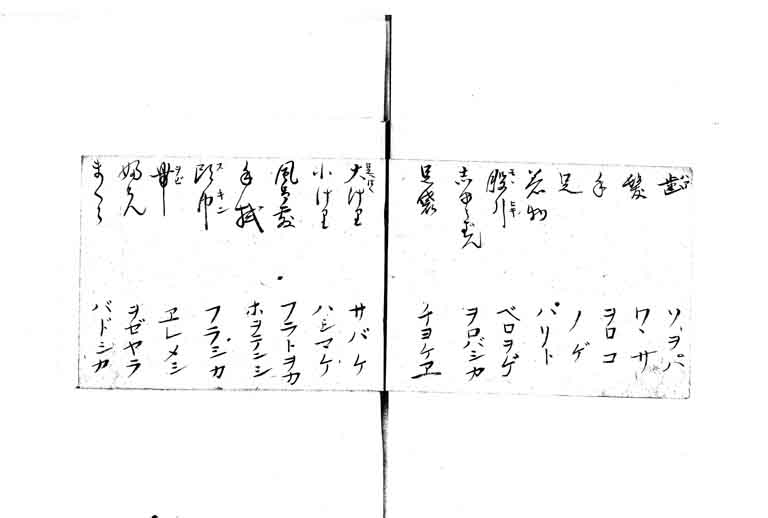 歯 ソヲパ
髪 ワヽサ
手 ヲロコ
足 ノゲ
着物 パリト
股引 ベロヲゲ
ヲロバシカ
足袋 チヨケヱ
大けり サバケ
小けり ハシマケ
風呂敷 フラトヲカ
手拭 ホヲテンシ
頭巾 ズキン フラシカ
帯 ヲビ ヱレメシ
ふとん ヲゼヤラ
まくら バドシカ